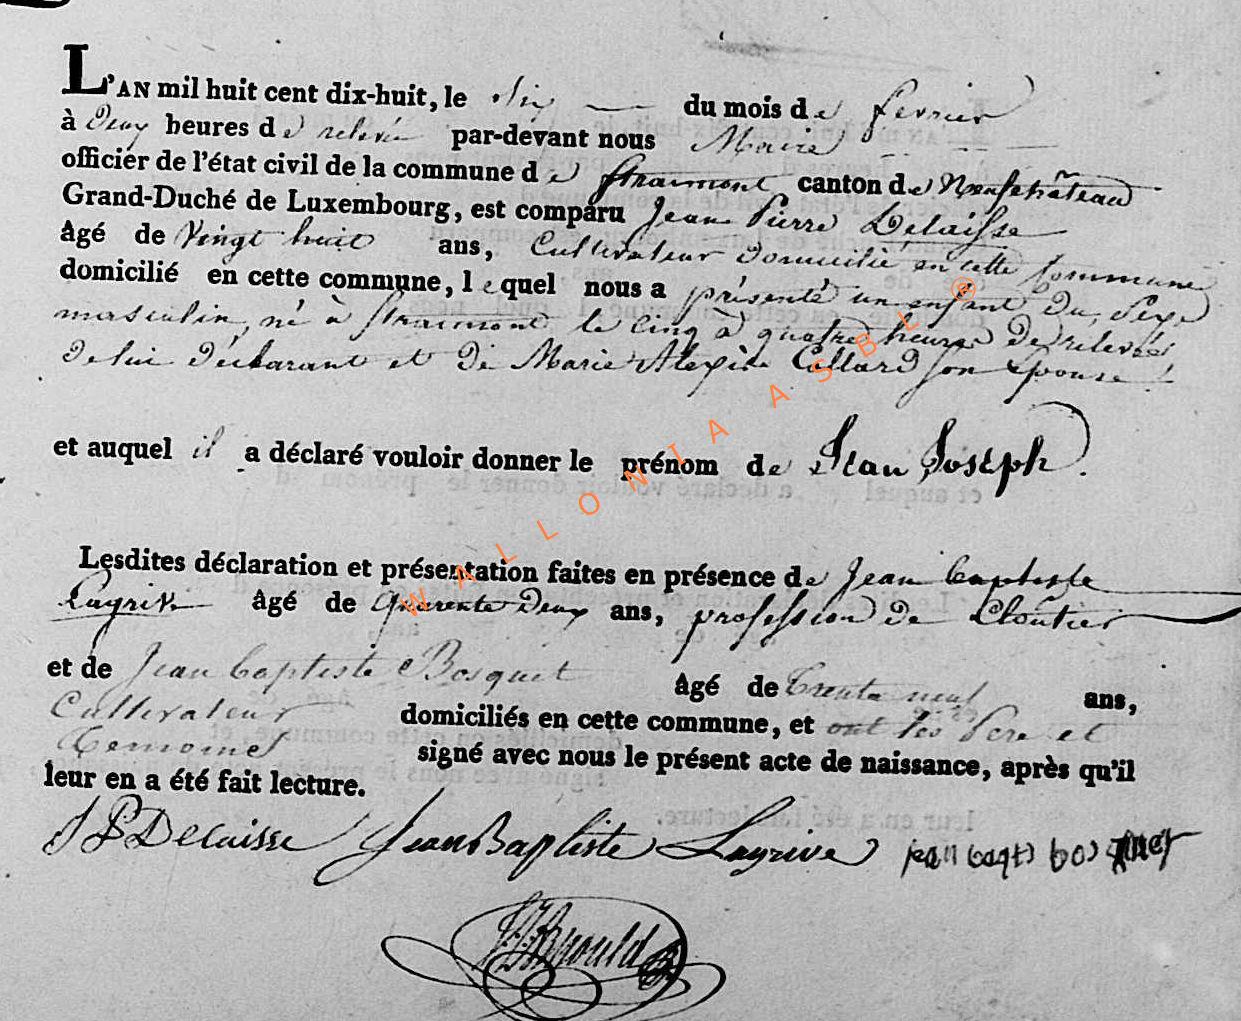 L'AN mil huit cent dix-huit, le six du mois de fevrier
à deux heures de relevée par-devant nous Maire
officier de l'état civil de la commune de Straimont canton de Neufchâteau
Grand-Duché de Luxembourg, est comparu Jean Pierre Delaisse
âgé de Vingt huit ans, Cultivateur domicilié en cette Commune
domicilié en cette commune, lequel nous a présenté un enfant du Sexe
masculin, né à Straimont le cinq à quatre heures de relevée
de lui déclarant et de Marie Collard son Epouse
et auquel il a déclaré vouloir donner le prénom de Jean Joseph.
Lesdites déclaration et présentation faites en présence de Jean baptiste
Lagrive âgé de quarente deux ans, profession de Cloutier
et de Jean baptiste Bosquet âgé de trente neuf ans,
Cultivateur domiciliés en cette commune, et ont les Pere et
temoins signé avec nous le présent acte de naissance, après qu'il
leur en a été fait lecture.
JP Delaisse Jean Baptiste Lagrive jean bapts bosquet
WALLONIA ASBL ®